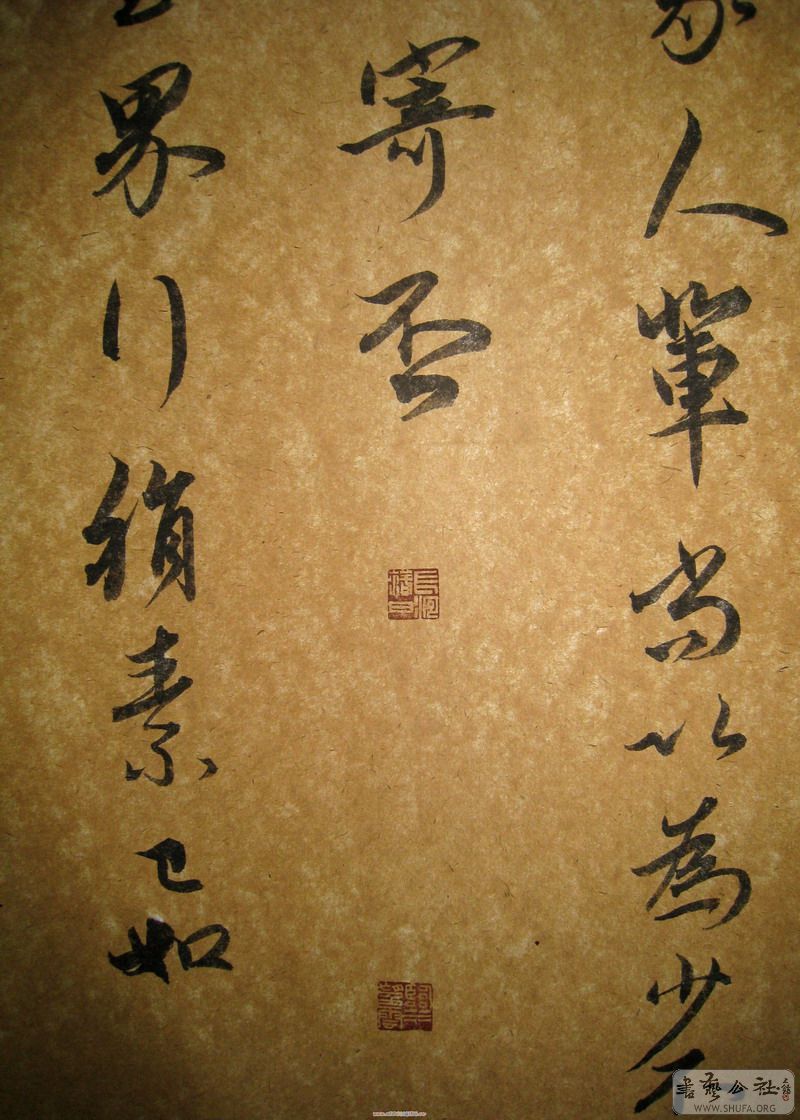 人輩尚以為少不
寄否
界行絹素已如
書藝公社
WWW.SHUFA.ORG